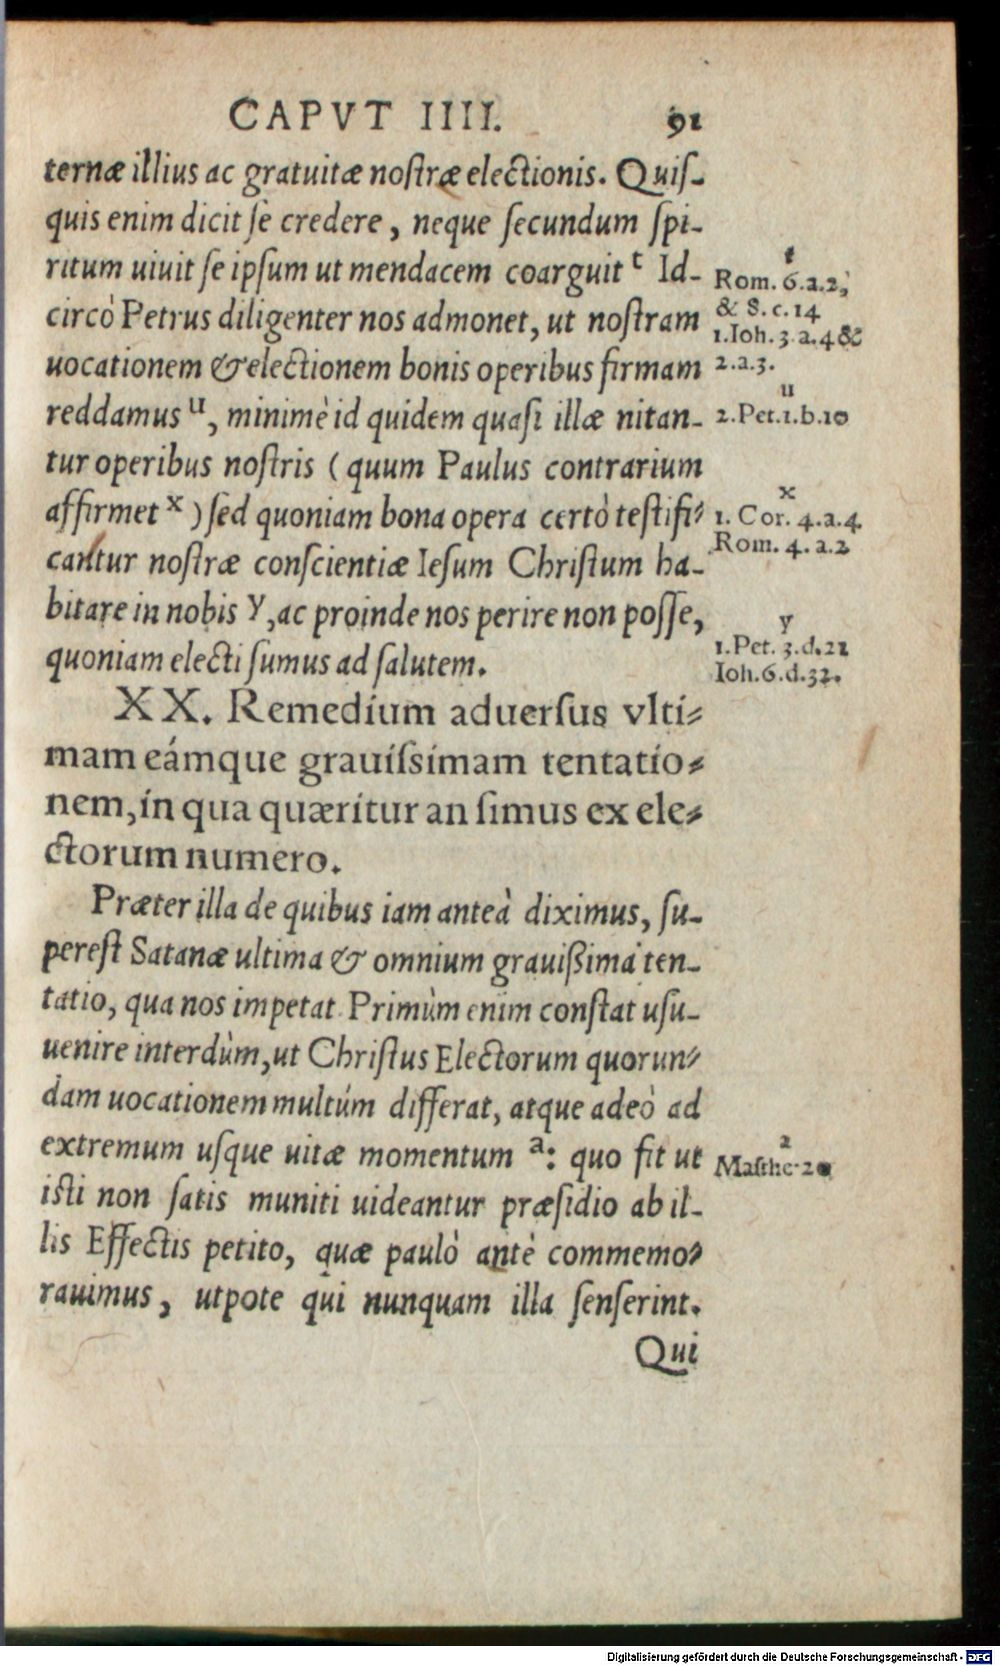 CAPVT IIII. 91
ternæ illius ac gratuitæ nostræ electionis. Quis-
quis enim dicit se credere, neque secundum spi-
ritum uiuit se ipsum ut mendacem coarguit t Id-
circò Petrus diligenter nos admonet, ut nostram
uocationem & electionem bonis operibus firmam
reddamus u, minimè id quidem quasi illæ nitan-
tur operibus nostris (quum Paulus contrarium
affirmet x) sed quoniam bona opera certò testifi-
cantur nostræ conscientiæ Iesum Christum ha-
bitare in nobis y, ac proinde nos perire non posse,
quoniam electi sumus ad salutem.
XX. Remedium aduersus vlti-
mam eámque grauissimam tentatio-
nem, in qua quæritur an simus ex ele-
ctorum numero.
Præter illa de quibus iam anteà diximus, su-
perest Satanæ ultima & omnium grauißima ten-
tatio, qua nos impetat Primùm enim constat usu-
uenire interdùm, ut Christus Electorum quorun-
dam uocationem multùm differat, atque adeò ad
extremum usque uitæ momentum a: quo fit ut
isti non satis muniti uideantur præsidio ab il-
lis Effectis petito, quæ paulò antè commemo-
rauimus, utpote qui nunquam illa senserint.
Qui
t
Rom. 6.a.2,
& 8.c.14
1.Ioh.3.a.4&
2.a.3.
u
2.Pet.1.b.10
x
1. Cor. 4.a.4.
Rom. 4.a.2
y
1.Pet. 3.d.21
Ioh.6.d.32.
a
Matthe. 20
Digitalisierung gefördert durch die Deutsche Forschungsgemeinschaft - DFG